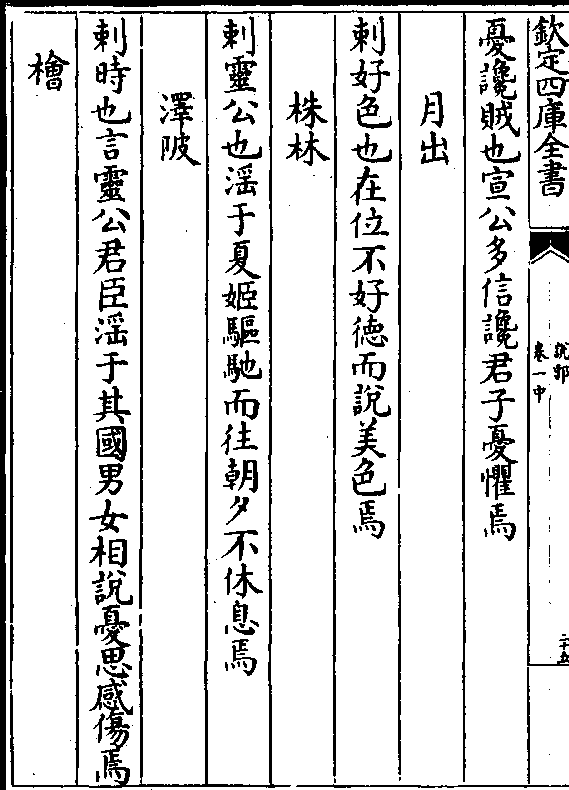 欽定四庫全書
說郛
卷一中
二十五
憂讒賊也宣公多信讒君子憂懼焉
月出
刺好色也在位不好徳而說美色焉
株林
刺靈公也滛于夏姬驅馳而往朝夕不休息焉
澤陂
刺時也言靈公君臣滛于其國男女相說憂思感傷焉
檜